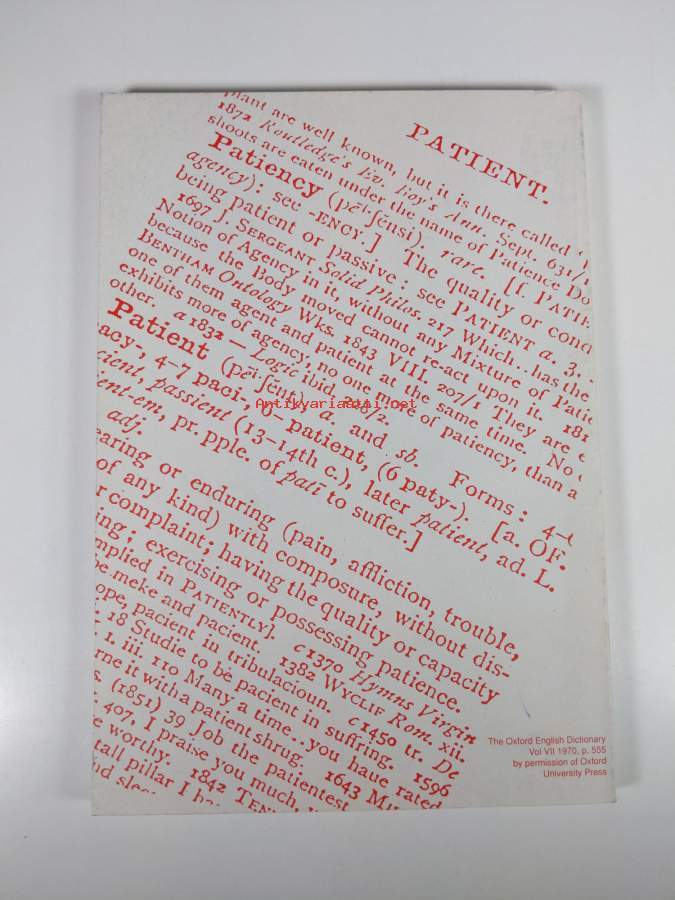 PATIENT.
plant are well known, but it is there called
1872 Routledge's Ev. Boy's Ann. Sept. 631/
shoots are eaten under the name of Patience Do
Patiency (pēⁱ·ʃĕnsi). rare. [f. PATIE
agency): see -ENCY.] The quality or cond
being patient or passive: see PATIENT a. 3.
1697 J. SERGEANT Solid Philos. 217 Which... has the
Notion of Agency in it, without any Mixture of Patie
because the Body moved cannot re-act upon it. 181
BENTHAM Ontology Wks. 1843 VIII. 207/1 They are e
one of them agent and patient at the same time. No
exhibits more of agency; no one more of patiency, than a
other. a 1832 — Logic ibid. 208/2.
Patient (pēⁱ·ʃĕnt), a. and sb. Forms: 4-
acy-, 4-7 paci-, 6- patient, (6 paty-). [a. OF.
cient passient (13-14th c.), later patient, ad. L.
ient-em, pr. pple. of pati to suffer.]
adj.
earing or enduring (pain, affliction, trouble,
of any kind) with composure, without dis-
r complaint; having the quality or capacity
ing; exercising or possessing patience.
mplied in PATIENTLY]. c 1370 Hymns Virgin
be meke and pacient. 1382 WYCLIF Rom. xii.
ope, pacient in tribulacioun. c 1450 tr. De
18 Studie to be pacient in suffring. 1596
1. iii. 110 Many a time... you haue rated
rne it with a patient shrug. 1643
s. (1851) 39 Job the patientest
407, I praise you much,
e worthy. 1842 TEN
tall pillar I ha
Antikyariaatti.net
The Oxford English Dictionary
Vol VII 1970, p. 555
by permission of Oxford
University Press